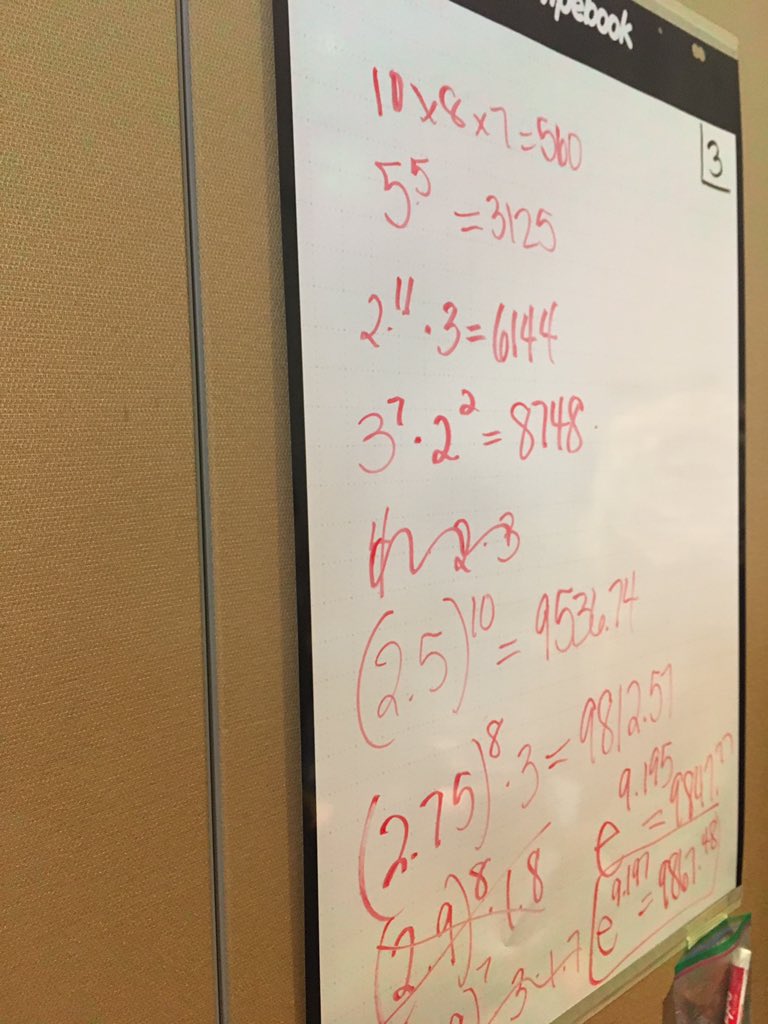 10×8×7=560
3
5⁵ =3125
2.¹¹·3=6144
3⁷·2²=8748
2·3
(2.5)¹⁰ = 9536.74
(2.75)⁸·3=9812.57
e⁹·¹⁹⁵ = 9847.⁷⁷
(2.9)⁸·1.8
e⁹·¹⁹⁷=9867.⁴⁸